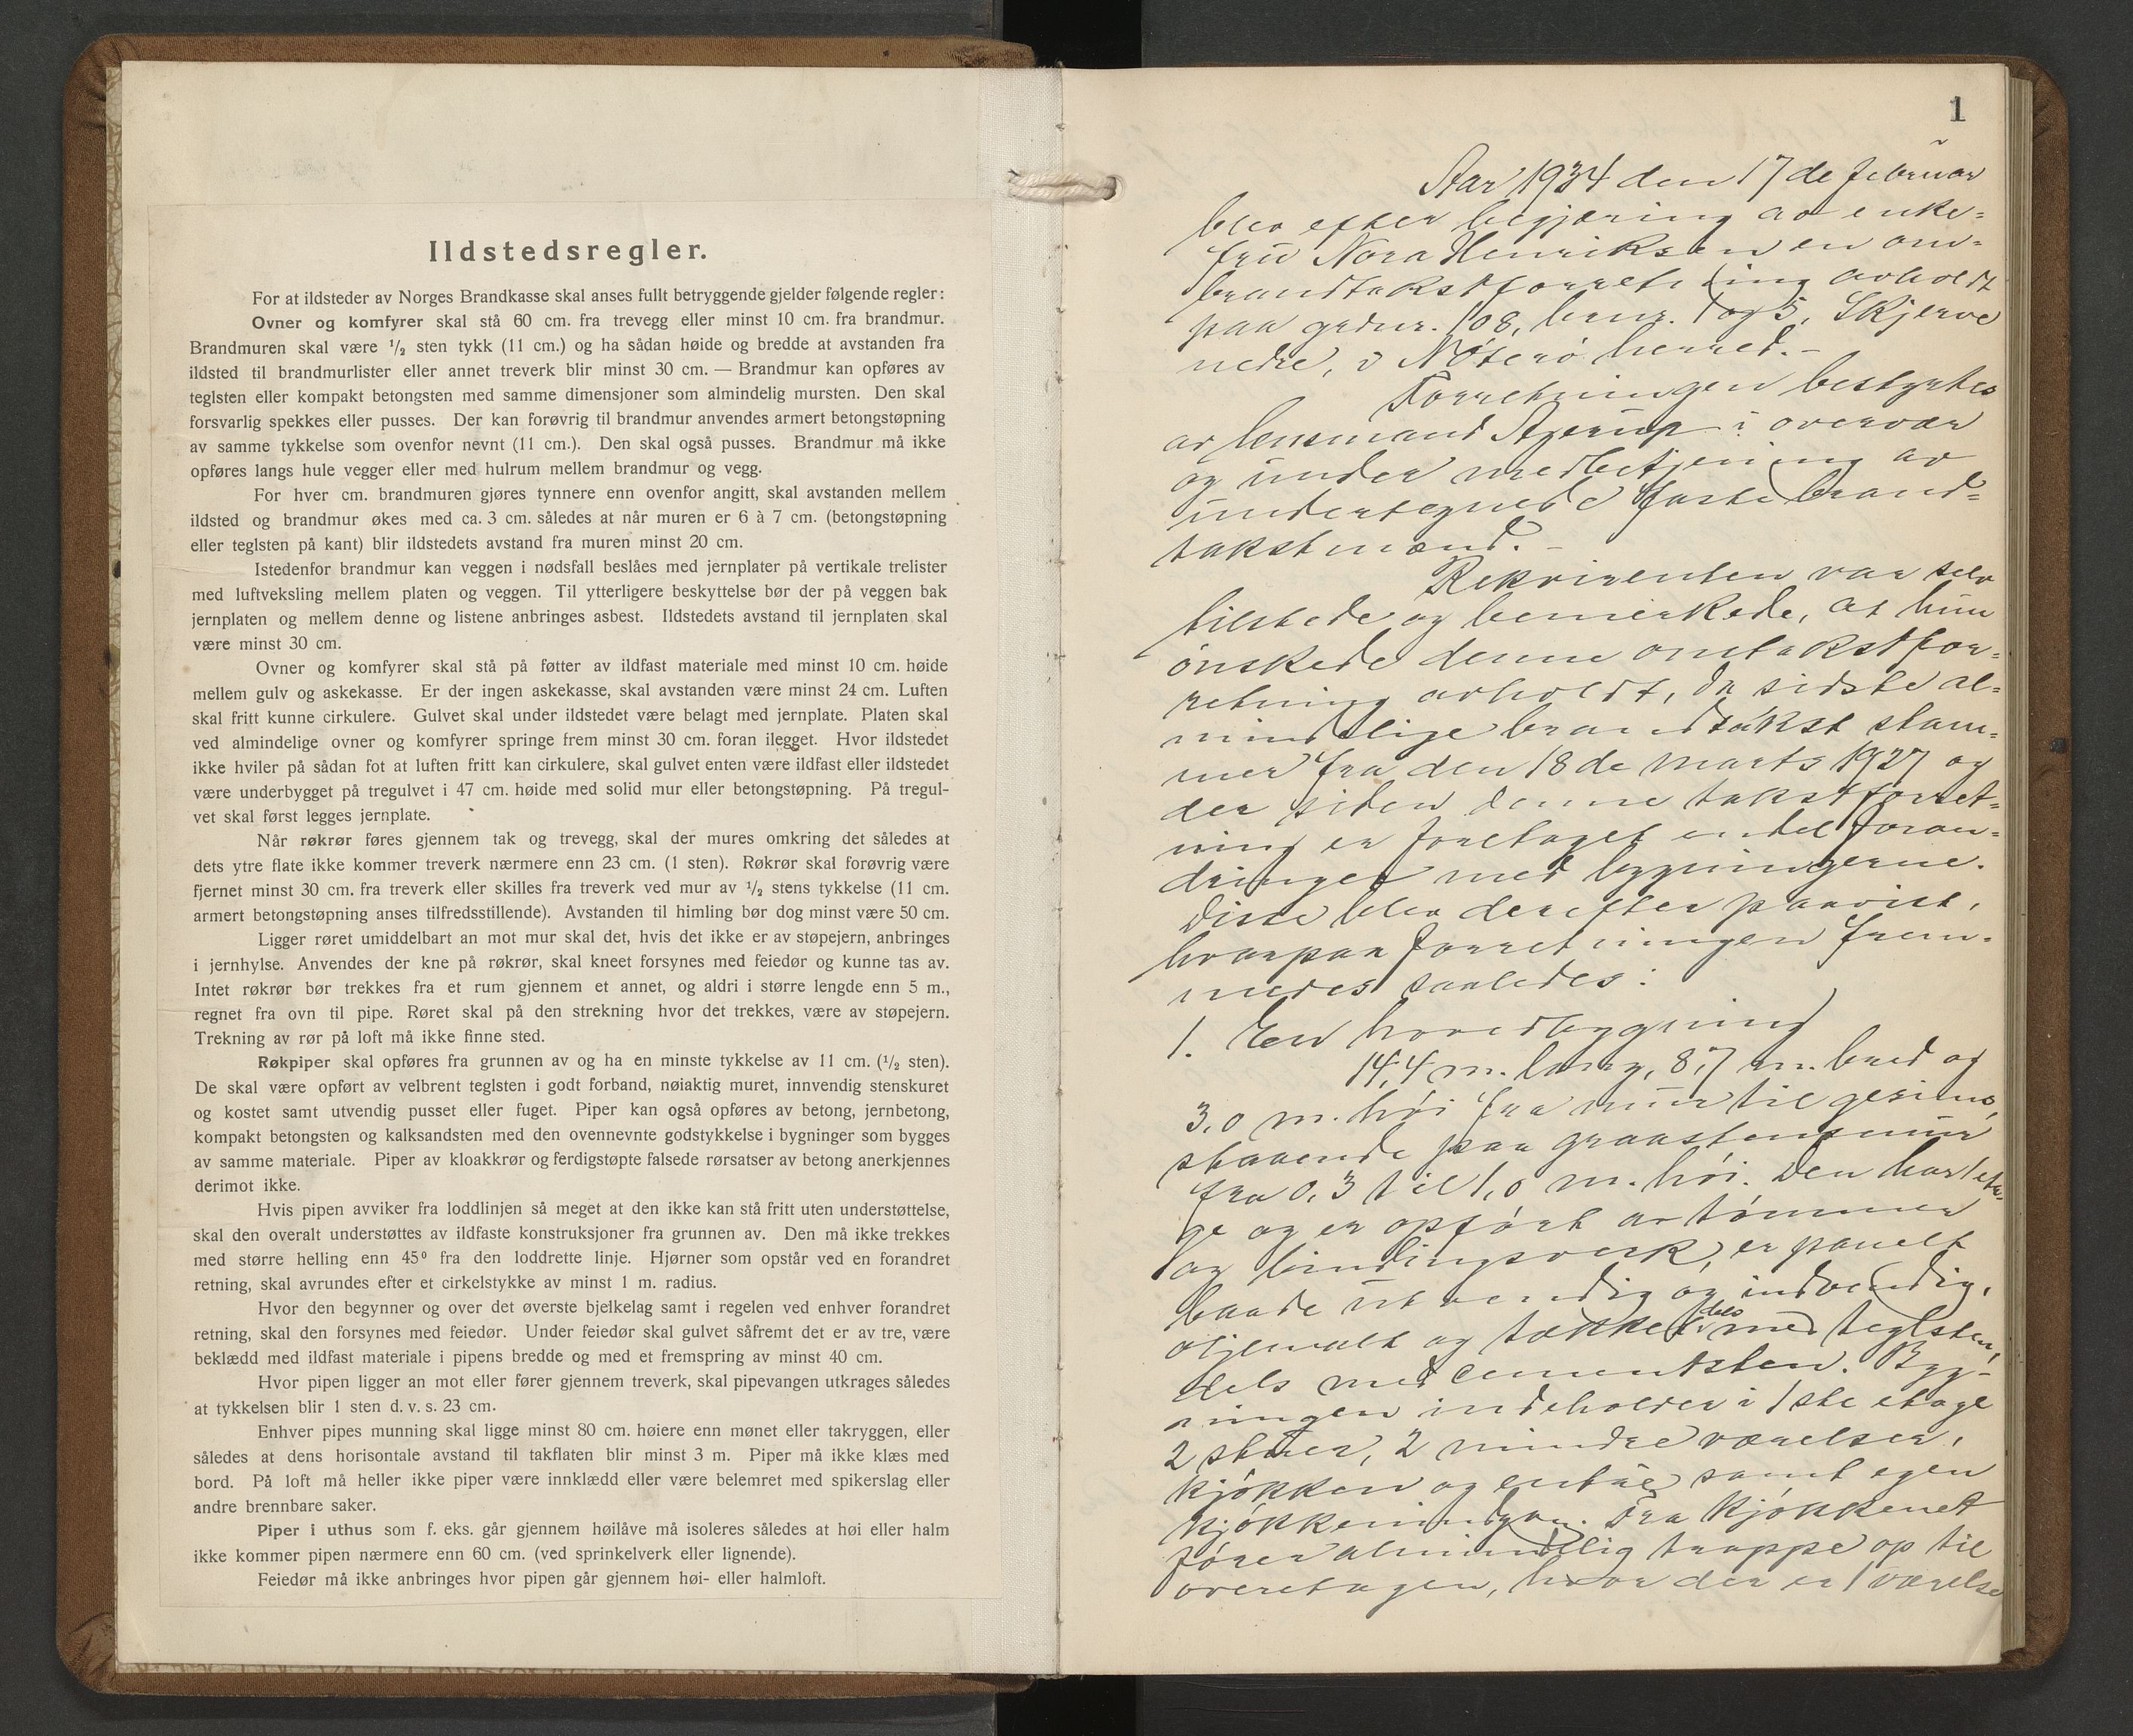 Ildstedsregler.
For at ildsteder av Norges Brandkasse skal anses fullt betryggende gjelder følgende regler:
Ovner og komfyrer skal stå 60 cm. fra trevegg eller minst 10 cm. fra brandmur.
Brandmuren skal være ¹/₂ sten tykk (11 cm.) og ha sådan høide og bredde at avstanden fra
ildsted til brandmurlister eller annet treverk blir minst 30 cm. — Brandmur kan opføres av
teglsten eller kompakt betongsten med samme dimensjoner som almindelig mursten. Den skal
forsvarlig spekkes eller pusses. Der kan forøvrig til brandmur anvendes armert betongstøpning
av samme tykkelse som ovenfor nevnt (11 cm.). Den skal også pusses. Brandmur må ikke
opføres langs hule vegger eller med hulrum mellem brandmur og vegg.
For hver cm. brandmuren gjøres tynnere enn ovenfor angitt, skal avstanden mellem
ildsted og brandmur økes med ca. 3 cm. således at når muren er 6 à 7 cm. (betongstøpning
eller teglsten på kant) blir ildstedets avstand fra muren minst 20 cm.
Istedenfor brandmur kan veggen i nødsfall beslåes med jernplater på vertikale trelister
med luftveksling mellem platen og veggen. Til ytterligere beskyttelse bør der på veggen bak
jernplaten og mellem denne og listene anbringes asbest. Ildstedets avstand til jernplaten skal
være minst 30 cm.
Ovner og komfyrer skal stå på føtter av ildfast materiale med minst 10 cm. høide
mellem gulv og askekasse. Er der ingen askekasse, skal avstanden være minst 24 cm. Luften
skal fritt kunne cirkulere. Gulvet skal under ildstedet være belagt med jernplate. Platen skal
ved almindelige ovner og komfyrer springe frem minst 30 cm. foran ilegget. Hvor ildstedet
ikke hviler på sådan fot at luften fritt kan cirkulere, skal gulvet enten være ildfast eller ildstedet
være underbygget på tregulvet i 47 cm. høide med solid mur eller betongstøpning. På tregul-
vet skal først legges jernplate.
Når røkrør føres gjennem tak og trevegg, skal der mures omkring det således at
dets ytre flate ikke kommer treverk nærmere enn 23 cm. (1 sten). Røkrør skal forøvrig være
fjernet minst 30 cm. fra treverk eller skilles fra treverk ved mur av ¹/₂ stens tykkelse (11 cm.
armert betongstøpning anses tilfredsstillende). Avstanden til himling bør dog minst være 50 cm.
Ligger røret umiddelbart an mot mur skal det, hvis det ikke er av støpejern, anbringes
i jernhylse. Anvendes der kne på røkrør, skal kneet forsynes med feiedør og kunne tas av.
Intet røkrør bør trekkes fra et rum gjennem et annet, og aldri i større lengde enn 5 m.,
regnet fra ovn til pipe. Røret skal på den strekning hvor det trekkes, være av støpejern.
Trekning av rør på loft må ikke finne sted.
Røkpiper skal opføres fra grunnen av og ha en minste tykkelse av 11 cm. (¹/₂ sten).
De skal være opført av velbrent teglsten i godt forband, nøiaktig muret, innvendig stenskuret
og kostet samt utvendig pusset eller fuget. Piper kan også opføres av betong, jernbetong,
kompakt betongsten og kalksandsten med den ovennevnte godstykkelse i bygninger som bygges
av samme materiale. Piper av kloakkrør og ferdigstøpte falsede rørsatser av betong anerkjennes
derimot ikke.
Hvis pipen avviker fra loddlinjen så meget at den ikke kan stå fritt uten understøttelse,
skal den overalt understøttes av ildfaste konstruksjoner fra grunnen av. Den må ikke trekkes
med større helling enn 45° fra den loddrette linje. Hjørner som opstår ved en forandret
retning, skal avrundes efter et cirkelstykke av minst 1 m. radius.
Hvor den begynner og over det øverste bjelkelag samt i regelen ved enhver forandret
retning, skal den forsynes med feiedør. Under feiedør skal gulvet såfremt det er av tre, være
beklædd med ildfast materiale i pipens bredde og med et fremspring av minst 40 cm.
Hvor pipen ligger an mot eller fører gjennem treverk, skal pipevangen utkrages således
at tykkelsen blir 1 sten d. v. s. 23 cm.
Enhver pipes munning skal ligge minst 80 cm. høiere enn mønet eller takryggen, eller
således at dens horisontale avstand til takflaten blir minst 3 m. Piper må ikke klæs med
bord. På loft må heller ikke piper være innklædd eller være belemret med spikerslag eller
andre brennbare saker.
Piper i uthus som f. eks. går gjennem høilåve må isoleres således at høi eller halm
ikke kommer pipen nærmere enn 60 cm. (ved sprinkelverk eller lignende).
Feiedør må ikke anbringes hvor pipen går gjennem høi- eller halmloft.
1
Aar 1934 den 17de februar
blev efter begjæring av enke=
fru Nora Henriksen en om=
brandtakstforretning avholdt
paa grdnr. 108, brnr. 1 og 5, Skjerve
nedre, i Nøterø herred.-
Forretningen bestyrtes
av lensmand Agerup i overvær
og under medbetjening av
undertegnede faste brand=
takstmænd. -
Rekvirenten var selv
tilstede og bemerkede, at hun
ønskede denne omtakstfor=
retning avholdt, da sidste al=
mindelige brandtakst stam=
mer fra den 18de marts 1927 og
der siden denne takstforret=
ning er foretaget endel foran=
dringer med bygningerne.
Disse blev derefter paavist,
hvorpaa forretningen frem-
medes saaledes:
1. En hovedbygning
14,4 m. lang, 8,7 m. bred og
3,0 m. høi fra mur til gesims,
staaende paa graastensmur
fra 0,3 til 1,0 m. høi. Den har 1 eta-
ge og er opført av tømmer
og bindingsverk, er panelt
baade utvendig og indvendig,
oljemalt og tækket dels med teglsten,
dels med cementsten. Byg-
ningen indeholder i 1ste etage
2 stuer, 2 mindre værelser,
kjøkken og entré samt egen
kjøkkenindgang. Fra kjøkkenet
fører almindelig trappe op til
overetagen, hvor der er 1 værelse